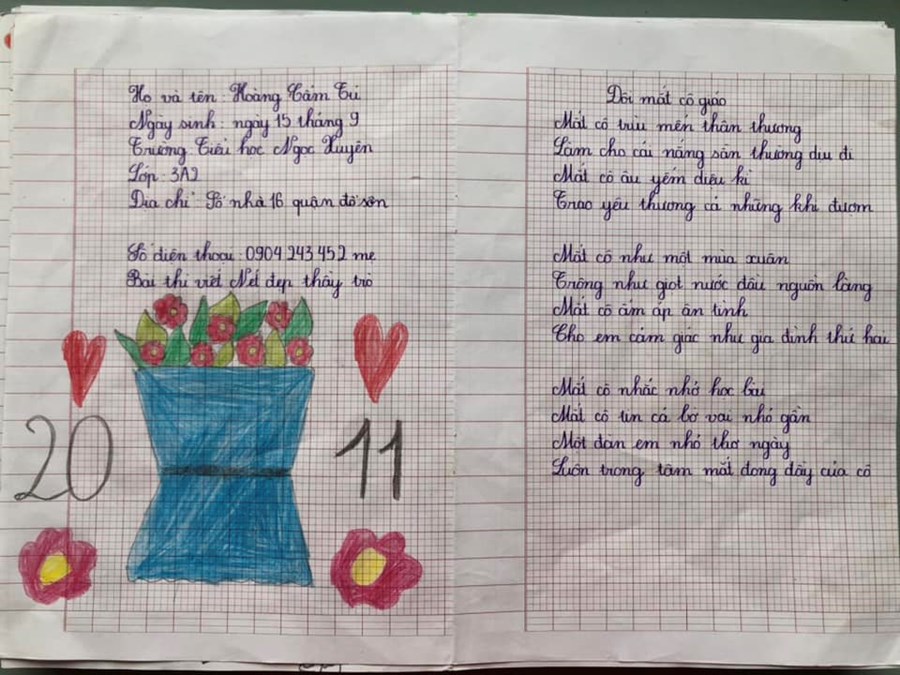 Họ và tên: Hoàng Cẩm Tú
Ngày sinh: ngày 15 tháng 9
Trường Tiểu học Ngọc Xuyên
Lớp: 3A2
Địa chỉ Số nhà 16 quận đồ sơn
Số điện thoại: 0904 243 452 mẹ
Bài thi viết Nét đẹp thầy trò
20
11
Đôi mắt cô giáo
Mắt cô trìu mến thân thương
Làm cho cái nắng sân thường dịu đi
Mắt cô âu yếm diệu kì
Trao yêu thương cả những khi đượm
Mắt cô như một mùa xuân
Trông như giọt nước đầu nguồn làng
Mắt cô ấm áp ân tình
Cho em cảm giác như gia đình thứ hai
Mắt cô nhắc nhở học bài
Mắt cô tin cả bờ vai nhỏ gần
Một đàn em nhỏ thơ ngây
Luôn trong tầm mắt đong đầy của cô